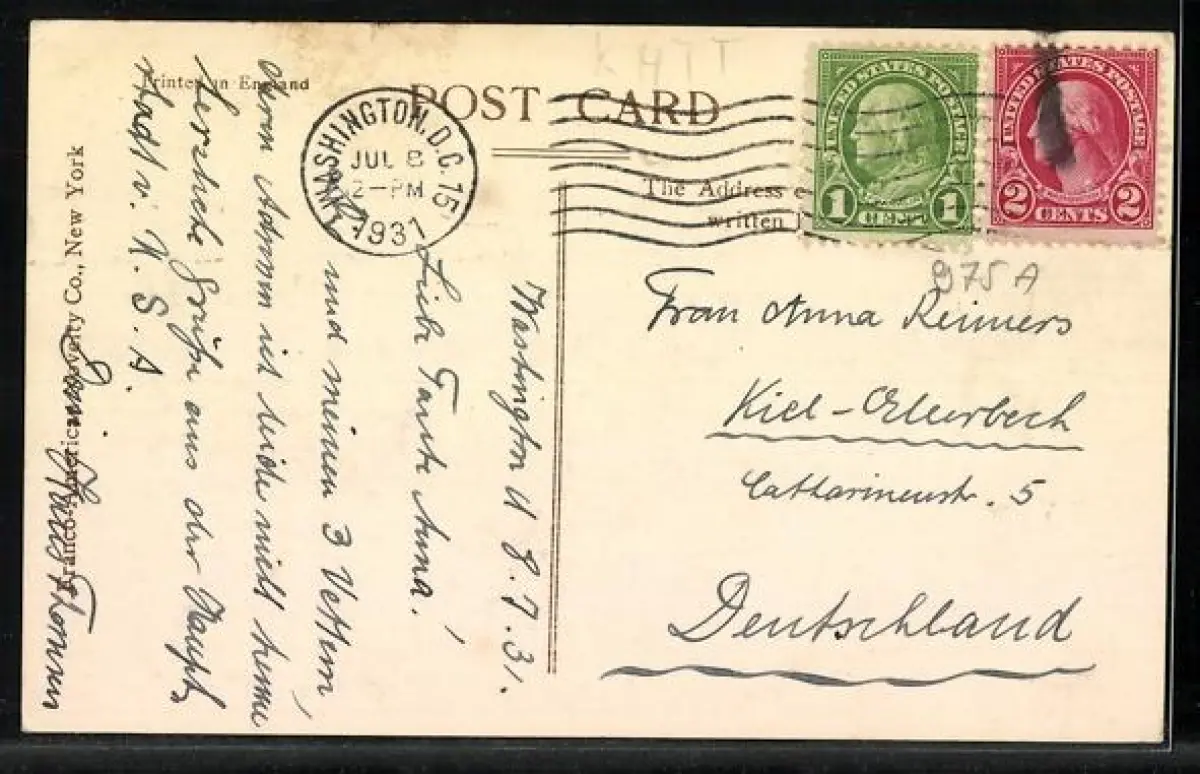 Printed in England
POST CARD
WASHINGTON, D.C. 15
JUL 8
2-PM
1931
UNITED STATES POSTAGE
1 CENT 1
UNITED STATES POSTAGE
2 CENTS 2
The Address
written
975 A
Frau Anna Reimers
Kiel-Ellerbeck
Catharinenstr. 5
Deutschland
Washington 8.7.31.
Liebe Tante Anna!
Und meinen 3 Vettern,
deren Adressen ich leider nicht kenne
herzliche Grüße aus der Haupt
stadt v. U.S.A.
Franco-American Novelty Co., New York